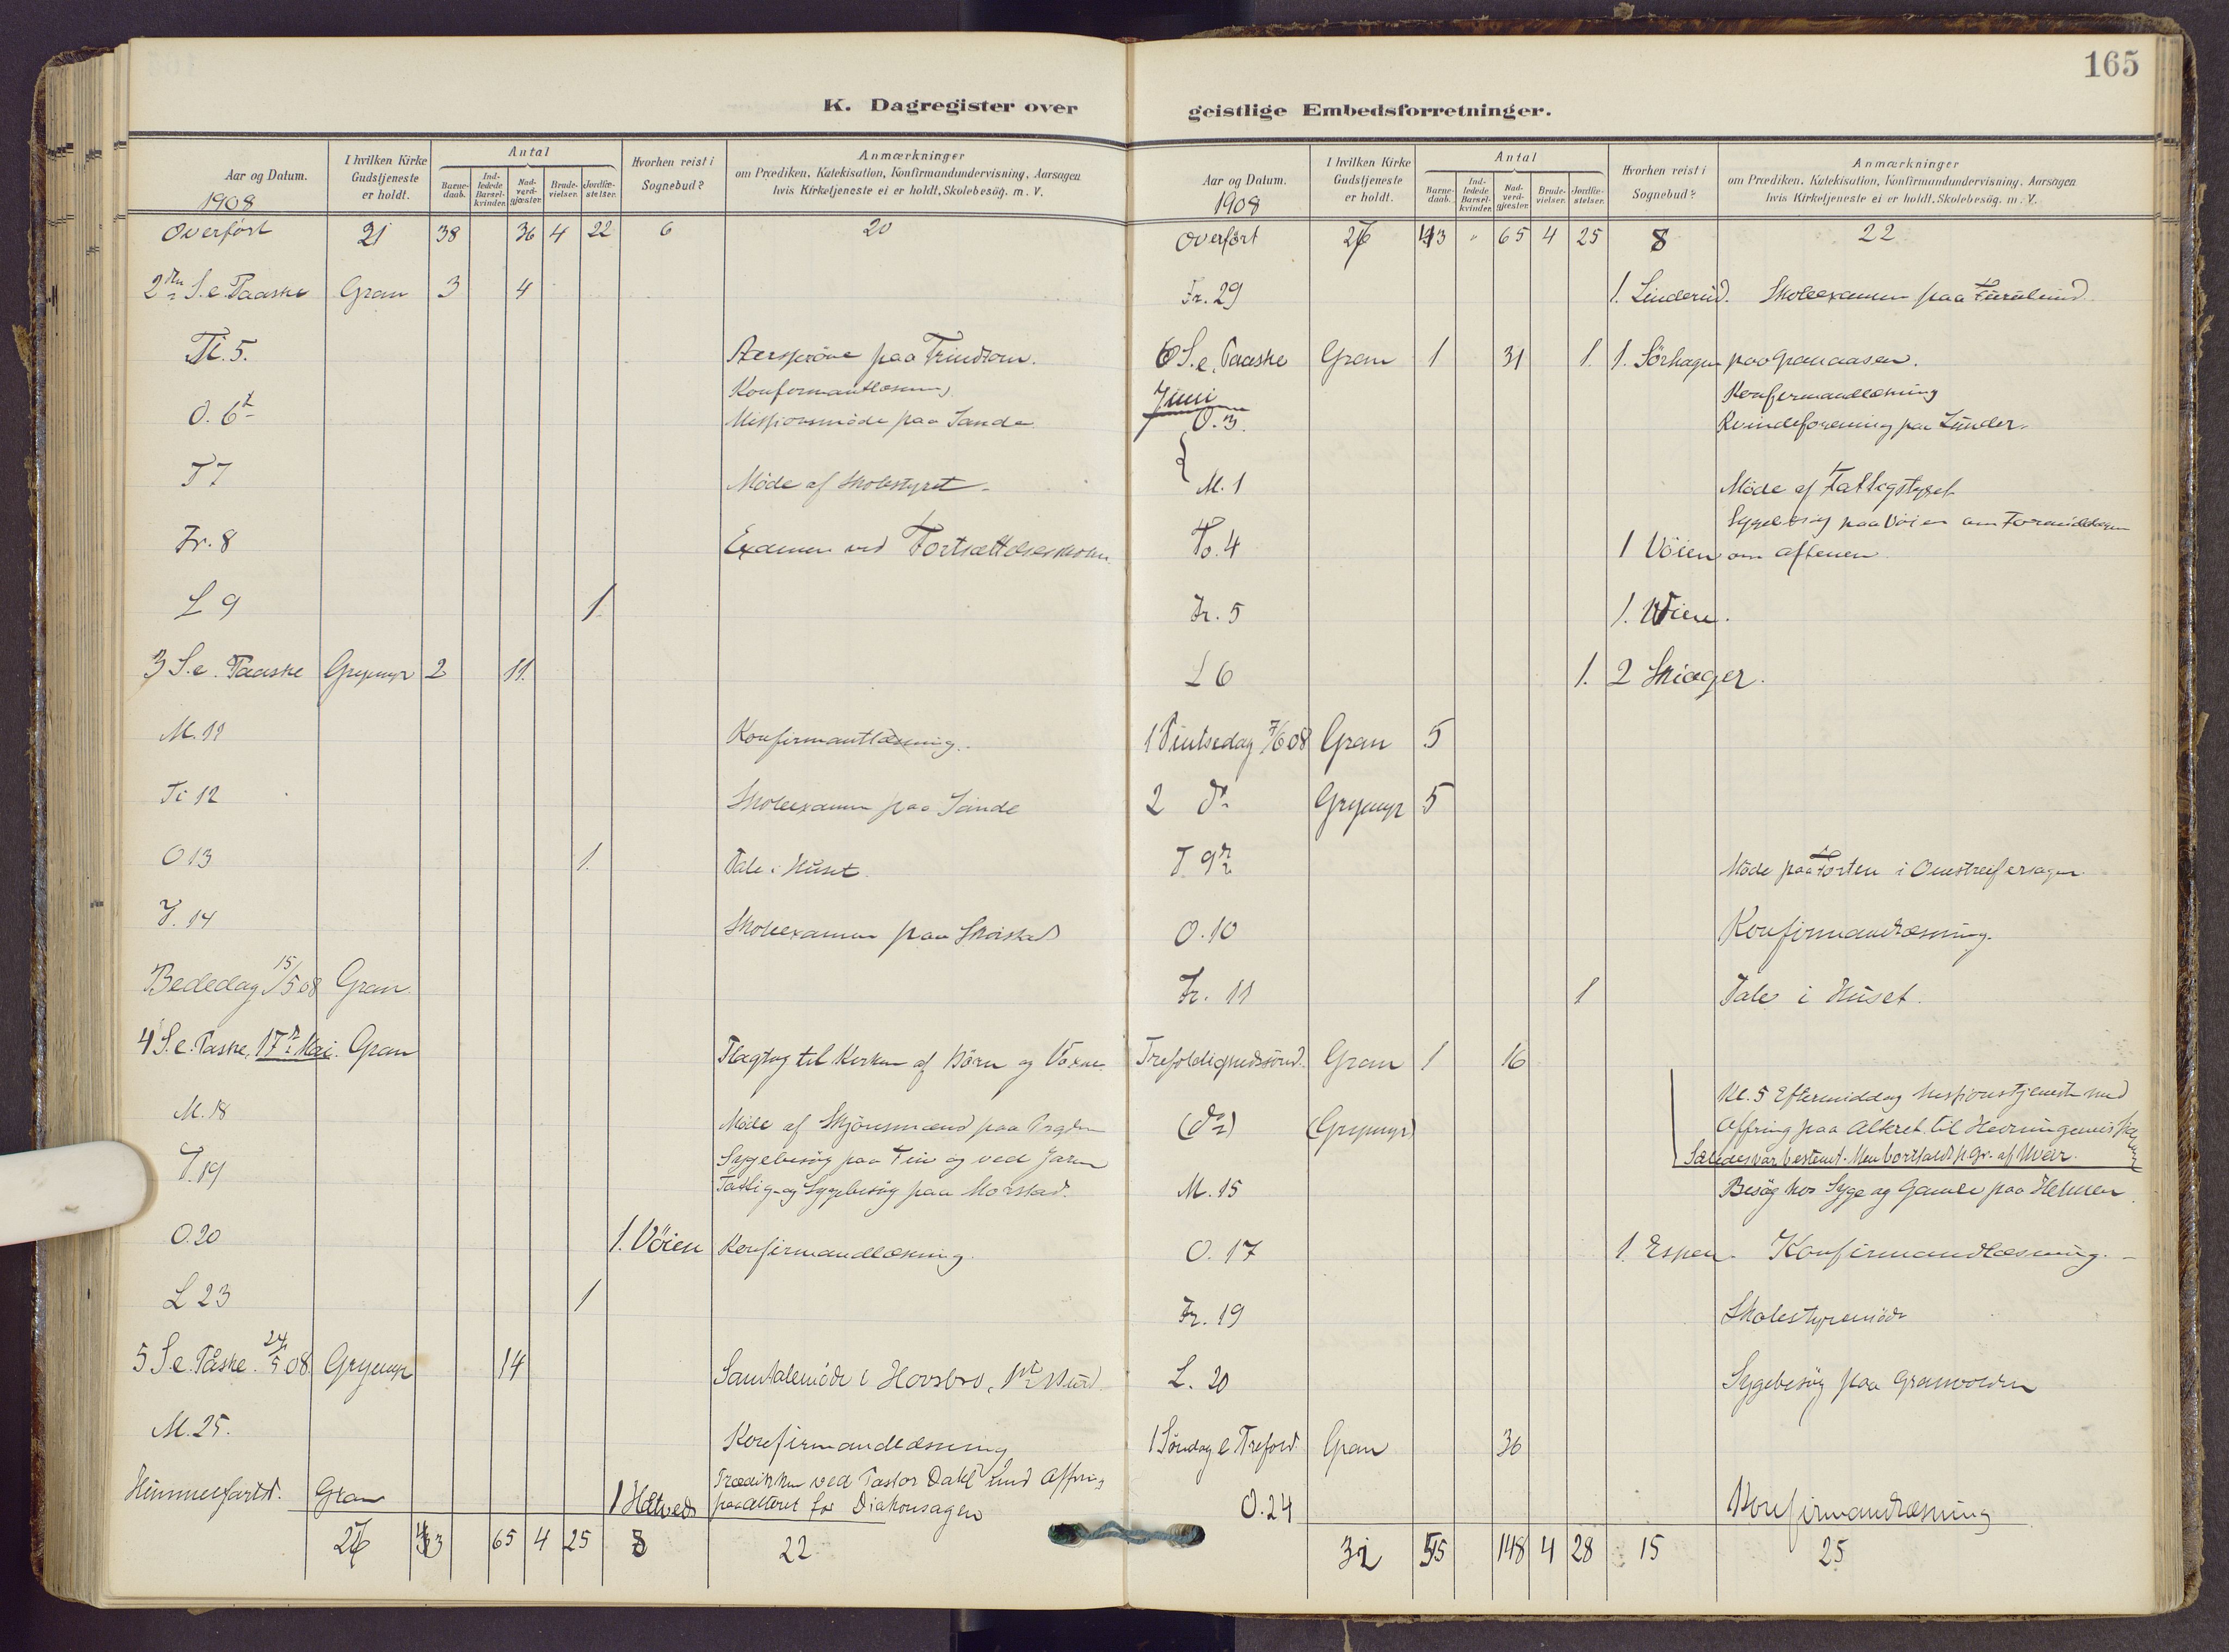 165
K. Dagregister over
Aar og Datum.
1908
I hvilken Kirke Gudstjeneste er holdt.
Antal
Barne-daab.
Ind-ledede Barsel-kvinder.
Nad-verd-gjæster.
Brude-vielser.
Jordfæ-stelser.
Hvorhen reist i Sognebud?
Anmærkninger
om Prædiken, Katekisation, Konfirmandundervisning, Aarsagen
hvis Kirketjeneste ei er holdt, Skolebesög. m. V.
Overført 21 38 36 4 22 6 20
2den S. e. Paaske Gran 3 4
Ti. 5. paa Trintom.
Konfirmantlæsning
O. 6te Missionsmöde paa Sande
T 7 Möde af Skolestyret
Fr. 8 Examen ved Fortsættelsesskolen
L 9 1
3 S. e. Paaske Grymyr 2 11.
M. 11 Konfirmantlæsning.
Ti 12 Skoleexamen paa Sande
O 13 1. Tale i Huset
T. 14 Skoleexamen paa
Bededag 15/5 08 Gran
4 S. e. Paske, 17de Mai. Gran Flagtog til Kirken af Börn og Voxne
M. 18 Möde af Skjönsmænd paa
Sygebesög paa og ved Jaren
T. 19 Fattig- og Sygebesög paa Morstad.
O. 20 1. Vöien Konfirmandlæsning
L 23 1
5 S. e. Påske. 24/5 08 Grymyr 14 Samtalemöde i Hovsbro,
M. 25. Konfirmandlæsning
Prædiken ved Pastor Dahl med Offring
Himmelfartsd. Gran 1 Hætved paa Alteret for Diakonsagen
26 43 65 4 25 8 22
geistlige Embedsforretninger.
Aar og Datum.
1908
I hvilken Kirke Gudstjeneste er holdt.
Antal
Barne-daab.
Ind-ledede Barsel-kvinder.
Nad-verd-gjæster.
Brude-vielser.
Jordfæ-stelser.
Hvorhen reist i Sognebud?
Anmærkninger
om Prædiken, Katekisation, Konfirmandundervisning, Aarsagen
hvis Kirketjeneste ei er holdt, Skolebesög. m. V.
Overført 26 43 " 65 4 25 8 22
Fr. 29 1. Linderud. Skoleexamen paa Furulund
6 S. e. Paaske Gran 1 31 1. 1. Sörhagen paa Granaasen.
Juni Konfirmandlæsning
O. 3. Kvindeforening paa Lunder.
M. 1 Möde af Fattigstyret
Sygebesög paa Vöien om Formiddagen
To. 4 1 Vöien om Aftenen
Fr. 5 1. Vöien.
L 6 1. 2 Skiager.
1 Pintsedag 7/6 08 Gran 5
2 do Grymyr 5
T. 9de Möde paa Torten i Omstreifersagen
O. 10 Konfirmandlæsning.
Fr. 11 1 Tale i Huset.
Trefoldighedssönd. Gran 1 16
Kl. 5 Eftermiddag Missionstjeneste med
(do) (Grymyr) Offring paa Alteret til
Saaledes var bestemt. Men bortfaldt p. Gr. af Uveir.
M. 15 Besög hos Syge og Gamle paa Helmen
O. 17 1. Espen. Konfirmandlæsning.
Fr. 19 Skolestyremöde
L. 20 Sygebesög paa Granvolden
1 Söndag e Trefold Gran 36
O. 24 Konfirmandlæsning
32 55 148 4 28 15 25